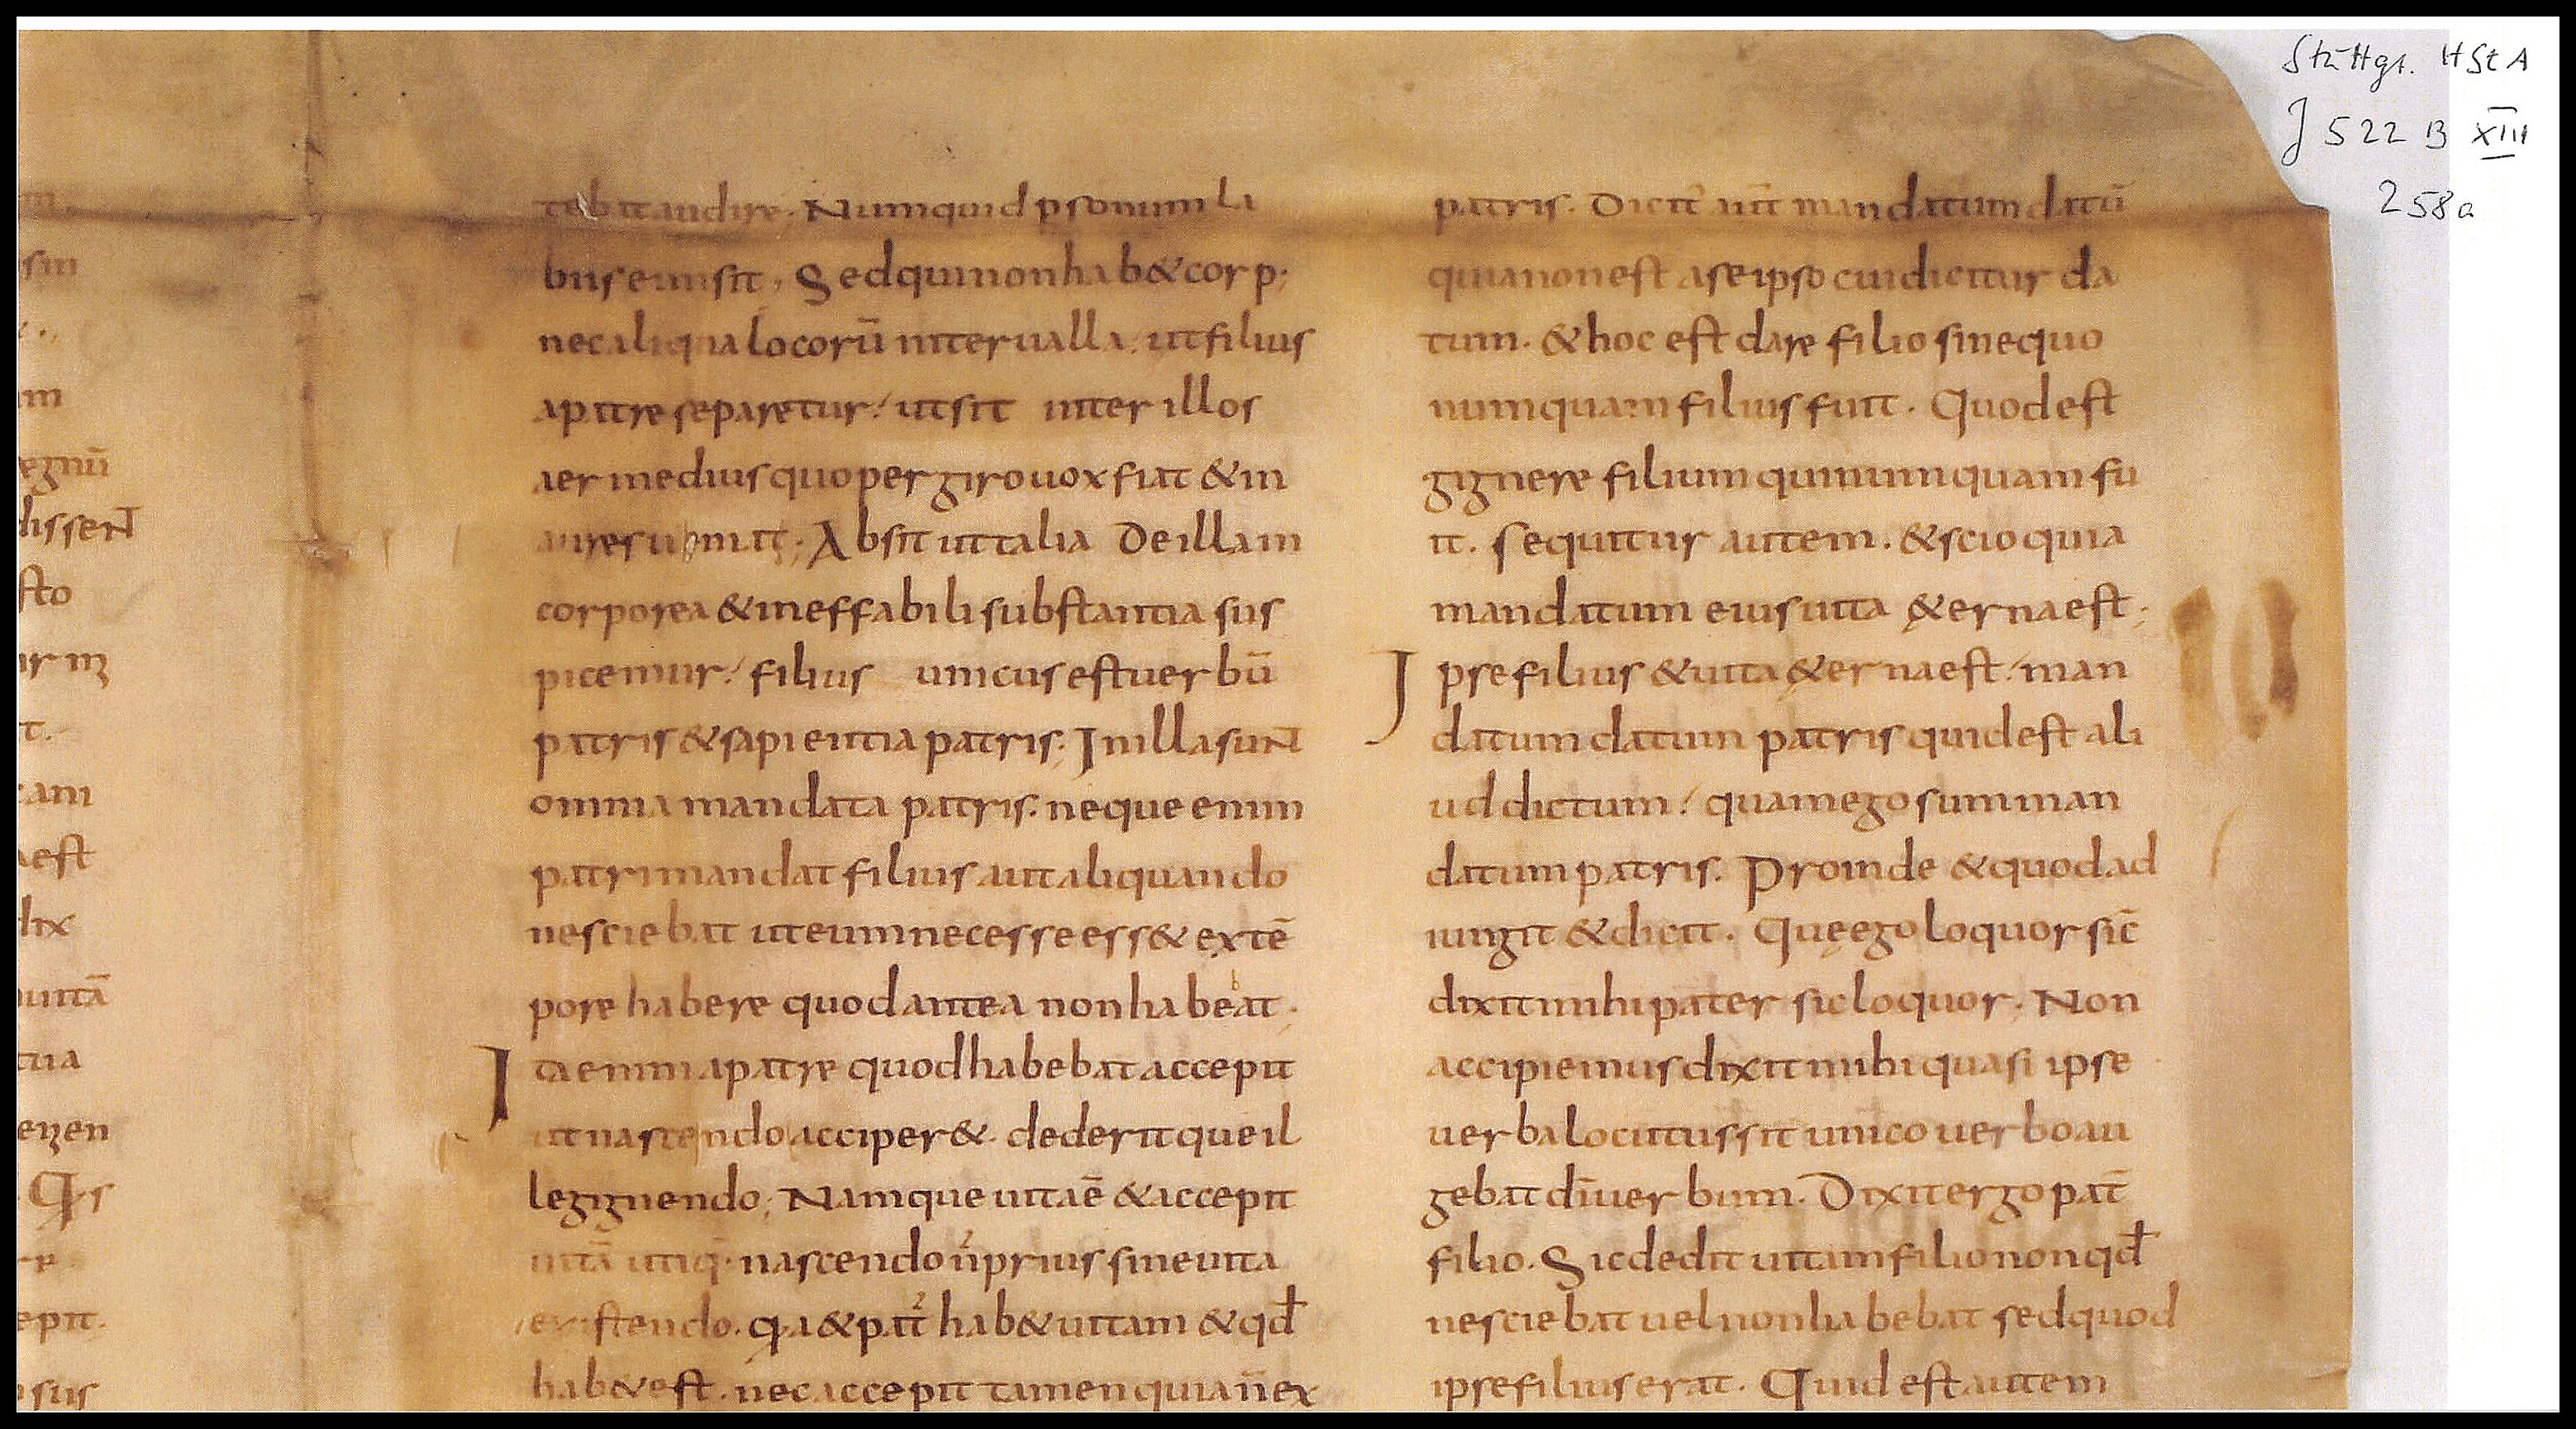 Stuttgt. HStA
J 522 B XIII
258a
m.
sin
m
egnū
dissent
sto
ur m
t.
am
aest
dix
uitā
tua
ezen
Qs
epit.
sus
tebat audire. Numquid p sonum la
biis emisit, Sed qui non hab& corp;
nec aliqua locorū interualla. ut filius
a patre separetur/ ut sit inter illos
aer medius quo per giro uox fiat & in
aures ueniat; Absit ut talia de illa in
corporea & ineffabili substantia sus
picemur/ filius unicus est uerbū
patris & sapientia patris; In illa sunt
omnia mandata patris. neque enim
patri mandat filius aut aliquando
nesciebat ut eum necesse ess& ex tē
pore habere quod antea non habeat.
Ita enim a patre quod habebat accepit
ut nascendo acciper&. dederitque il
le gignendo; Namque uita ē & accepit
uitā utiq; nascendo n̄ prius sine uita
existendo. qa & pat̄ hab& uitam & qđ
hab& est. nec accepit tamen quia n̄ ex
patris. Dicit aūt mandatum datū
quia non est a se ipso cui dicitur da
tum. & hoc est dare filio sine quo
numquam filius fuit. Quod est
gignere filium qui numquam fu
it. sequitur autem. & scio quia
mandatum eius uita &erna est;
Ipse filius & uita &erna est/ man
datum datum patris quid est ali
ud dictum/ quam ego sum man
datum patris. Proinde & quod ad
iungit & dicit. Quę ego loquor sic̄
dixit mihi pater sic loquor. Non
accipiemus dixit mihi quasi ipse
uerba locutus sit unico uerbo au
gebat dī uerbum. Dixit ergo pat̄
filio. Sic dedit uitam filio non qđ
nesciebat uel non habebat sed quod
ipse filius erat. Quid est autem